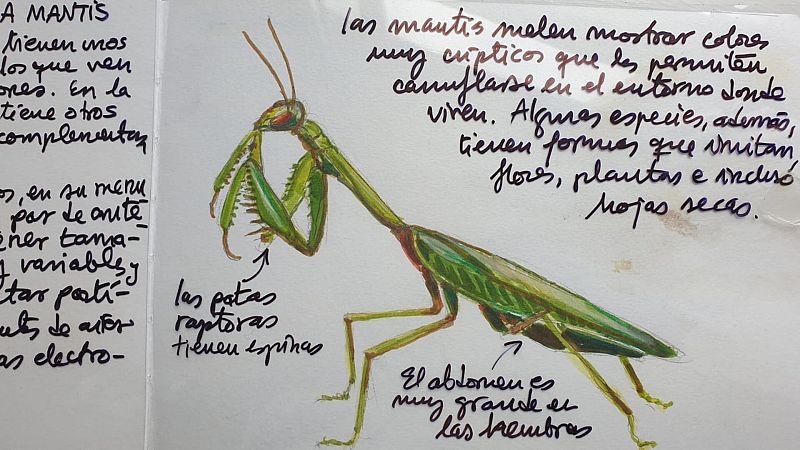 A MANTIS
tienen unos
los que ven
ores. En la
tiene otros
complementan
os, en su menu
par de anté
ener tama-
y variables, y
tar partí-
de aire
as electro-
las mantis suelen mostrar colores
muy crípticos que les permiten
camuflarse en el entorno donde
viven. Algunas especies, además,
tienen formas que imitan
flores, plantas e incluso
hojas secas.
las patas
raptoras
tienen espinas
El abdomen es
muy grande en
las hembras